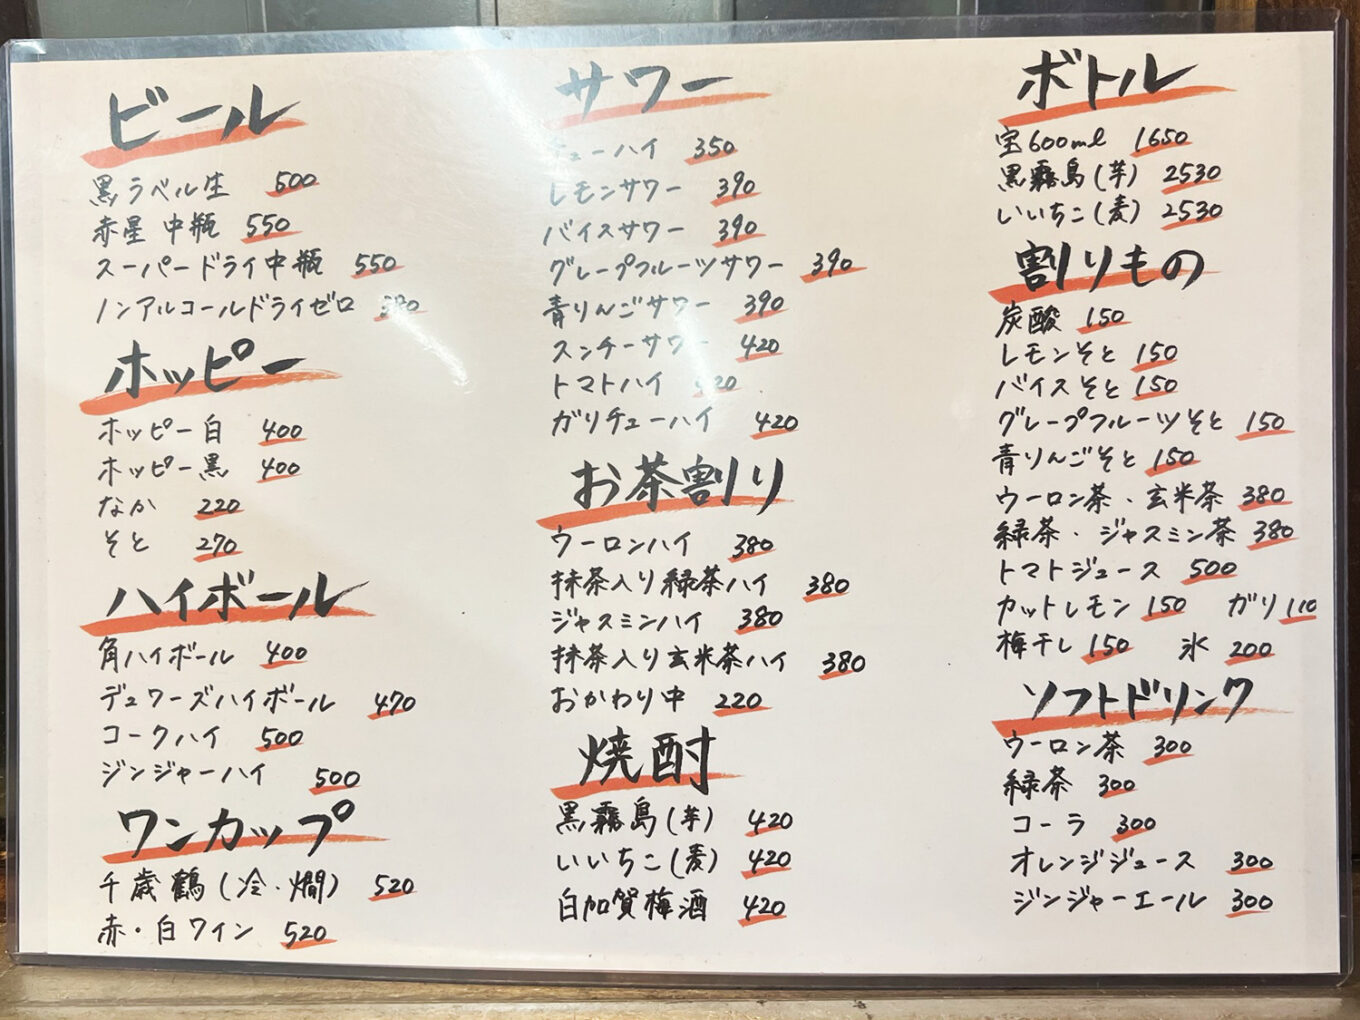 ビール
黒ラベル生 500
赤星 中瓶 550
スーパードライ中瓶 550
ノンアルコールドライゼロ
ホッピー
ホッピー白 400
ホッピー黒 400
なか 220
そと 270
ハイボール
角ハイボール 400
デュワーズハイボール 470
コークハイ 500
ジンジャーハイ 500
ワンカップ
千歳鶴(冷・燗) 520
赤・白ワイン 520
サワー
チューハイ 350
レモンサワー 390
バイスサワー 390
グレープフルーツサワー 390
青りんごサワー 390
スンチーサワー 420
トマトハイ
ガリチューハイ 420
お茶割り
ウーロンハイ 380
抹茶入り緑茶ハイ 380
ジャスミンハイ 380
抹茶入り玄米茶ハイ 380
おかわり中 220
焼酎
黒霧島(芋) 420
いいちこ(麦) 420
白加賀梅酒 420
ボトル
宝600ml 1650
黒霧島(芋) 2530
いいちこ(麦) 2530
割りもの
炭酸 150
レモンそと 150
バイスそと 150
グレープフルーツそと 150
青りんごそと 150
ウーロン茶・玄米茶 380
緑茶・ジャスミン茶 380
トマトジュース 500
カットレモン 150 ガリ 110
梅干し 150 氷 200
ソフトドリンク
ウーロン茶 300
緑茶 300
コーラ 300
オレンジジュース 300
ジンジャーエール 300